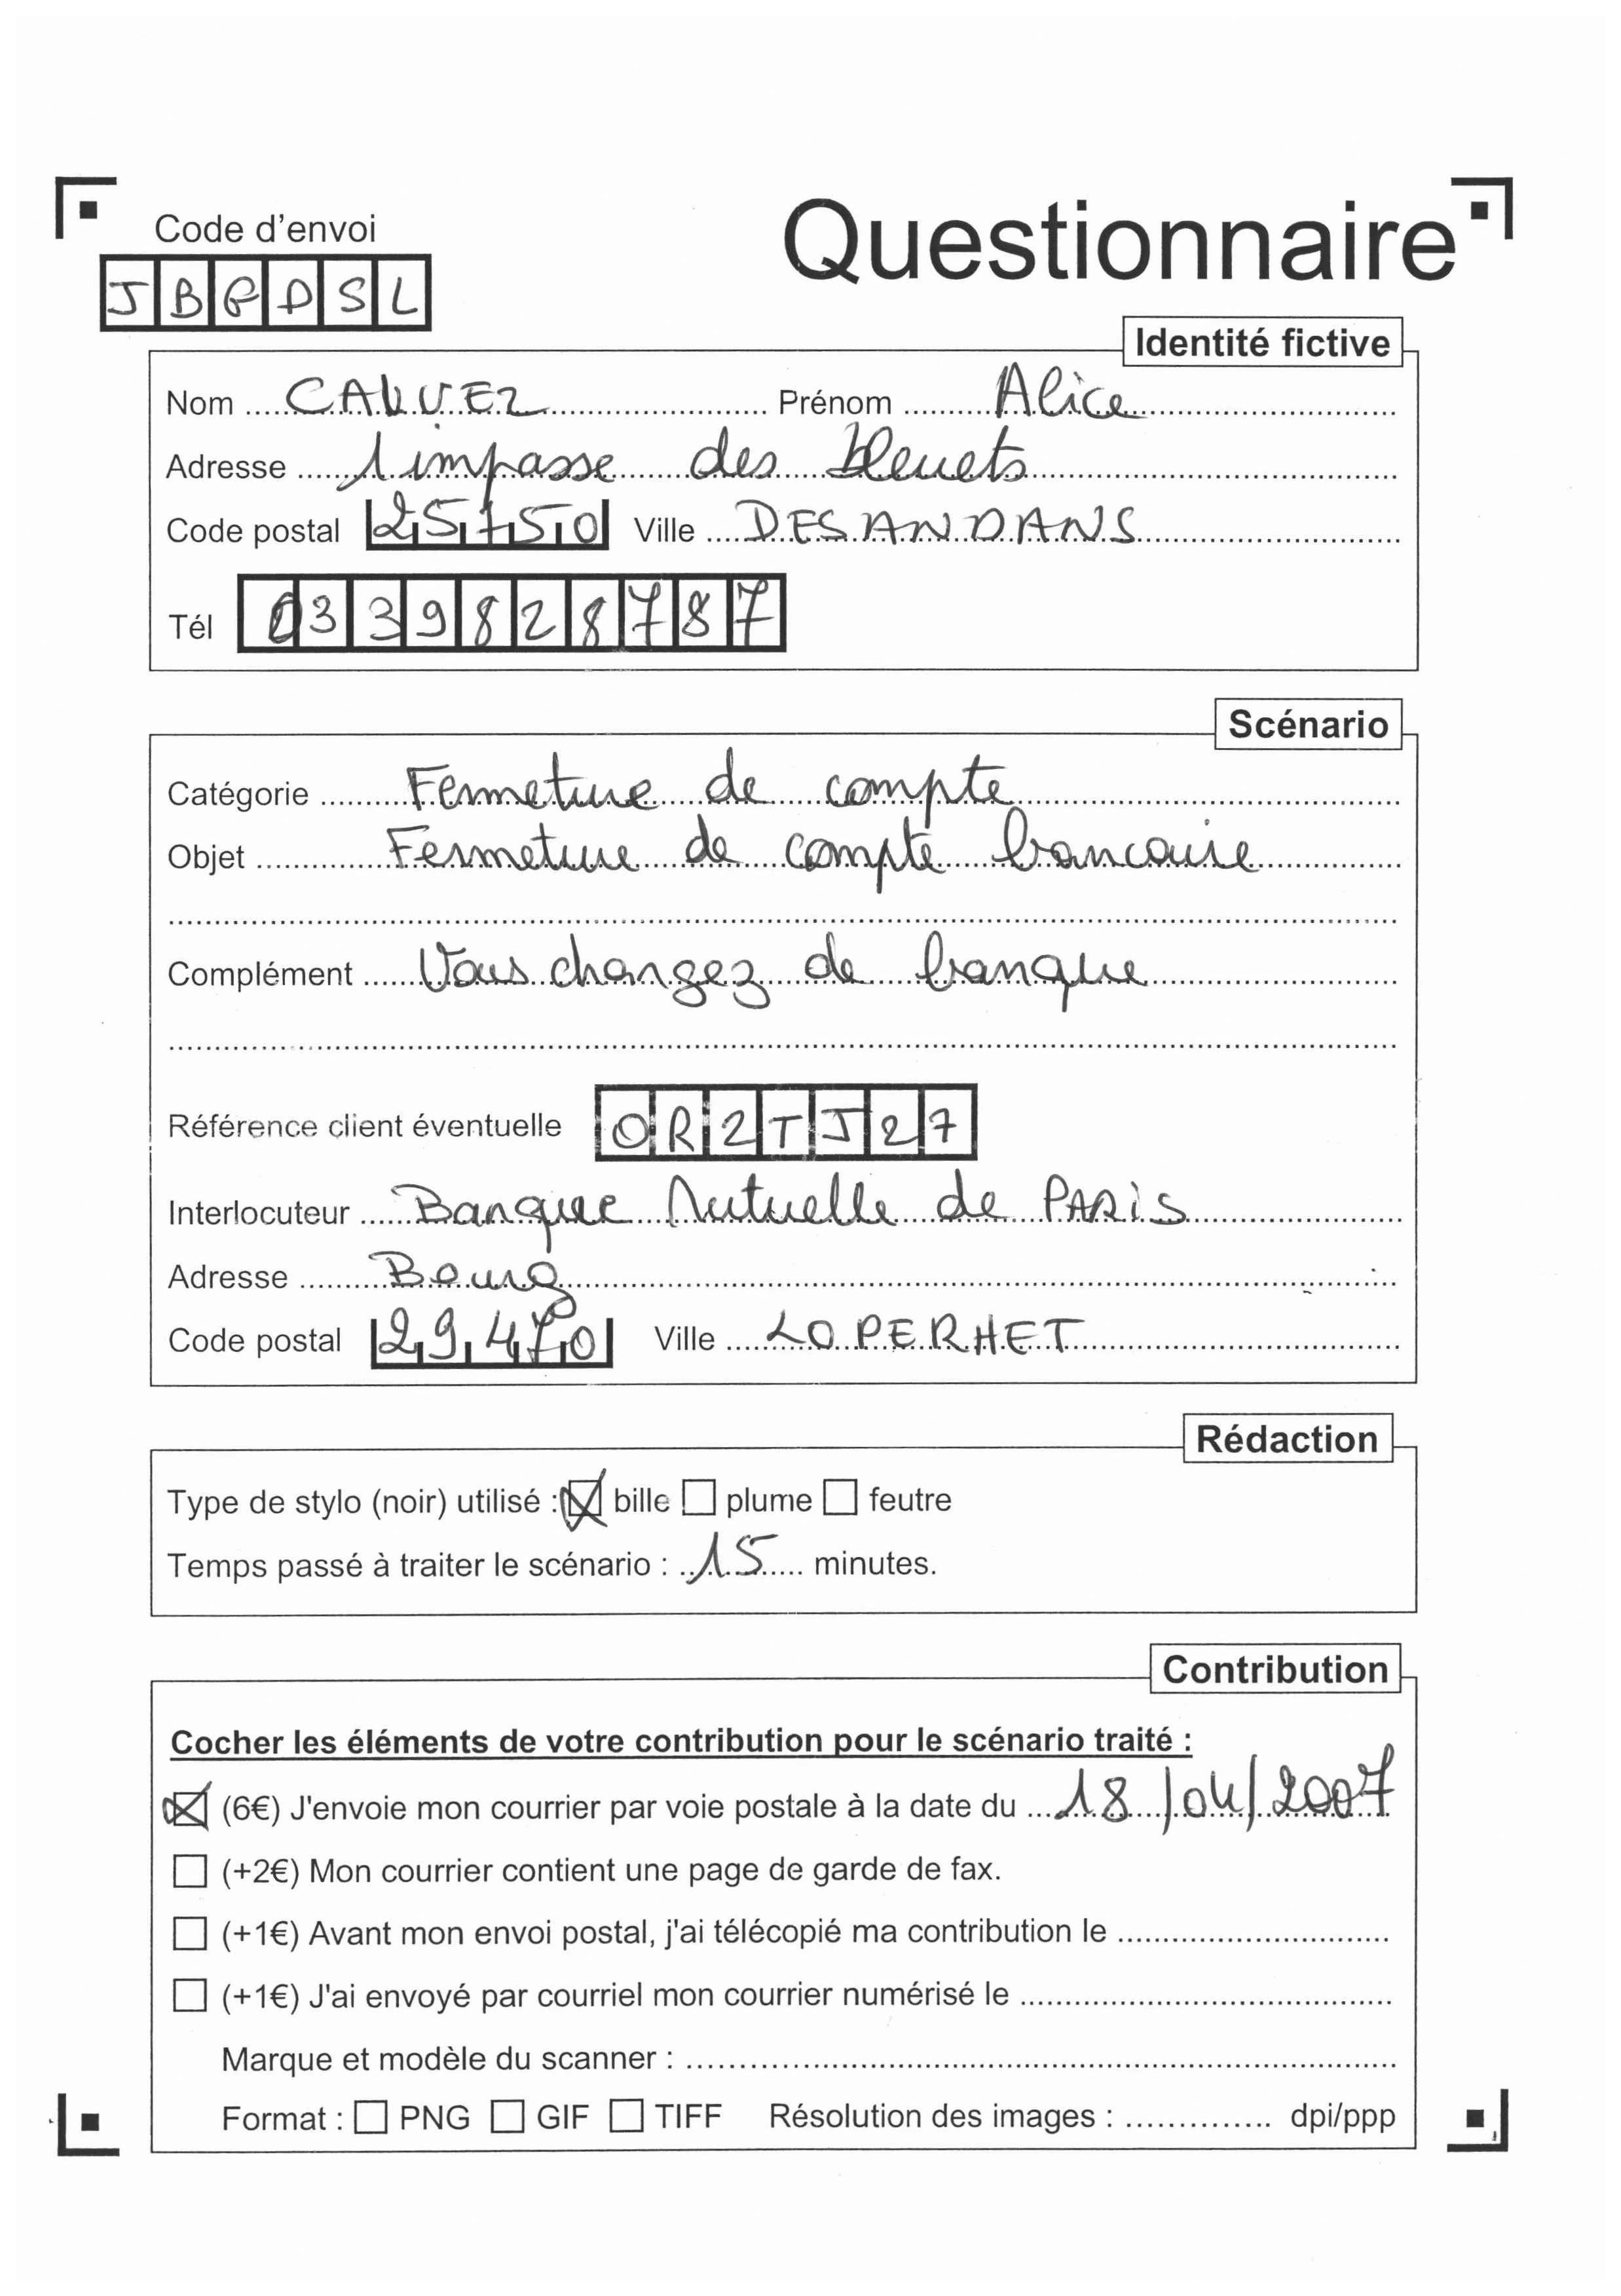 Code d'envoi
Questionnaire
JBGDSL
Identité fictive
Nom CALVEZ Prénom Alice
Adresse 1 impasse des bleuets
Code postal 25750 Ville DESANDANS
Tél 0339828787
Scénario
Catégorie Fermeture de compte
Objet Fermeture de compte bancaire
Complément Vous changez de banque
Référence client éventuelle OR2TJ27
Interlocuteur Banque Mutuelle de PARiS
Adresse Bourg
Code postal 29470 Ville LOPERHET
Rédaction
Type de stylo (noir) utilisé : bille plume feutre
Temps passé à traiter le scénario : 15 minutes.
Contribution
Cocher les éléments de votre contribution pour le scénario traité :
(6€) J'envoie mon courrier par voie postale à la date du 18/04/2007
(+2€) Mon courrier contient une page de garde de fax.
(+1€) Avant mon envoi postal, j'ai télécopié ma contribution le
(+1€) J'ai envoyé par courriel mon courrier numérisé le
Marque et modèle du scanner :
Format : PNG GIF TIFF Résolution des images : dpi/ppp